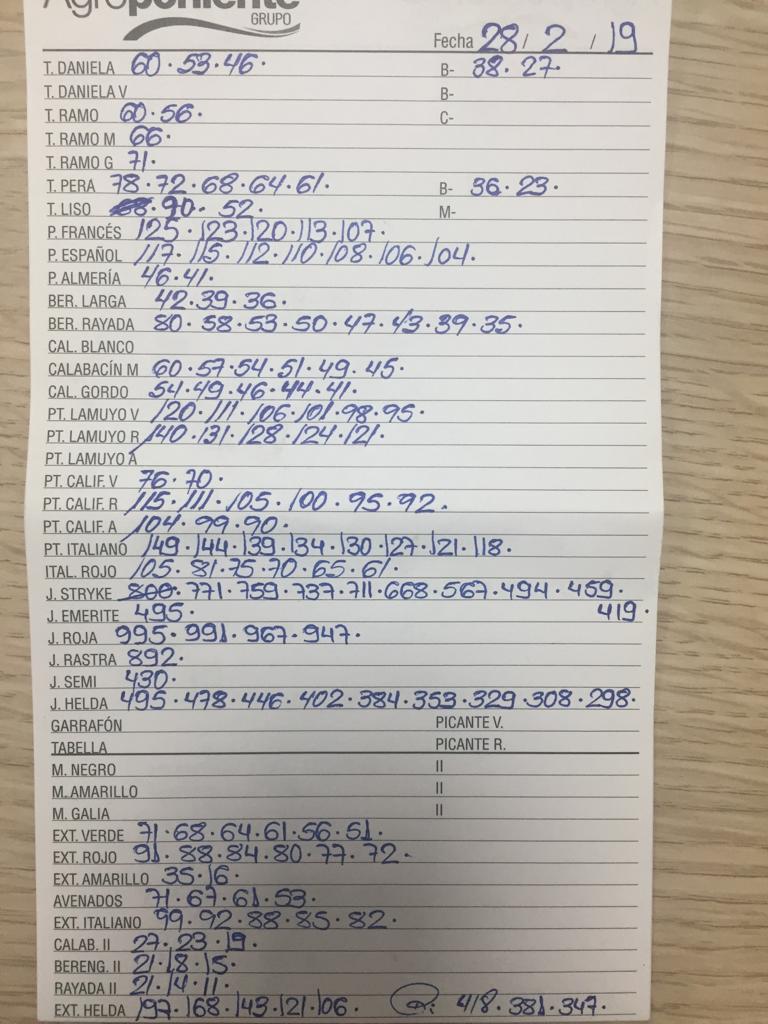 Agroponiente
GRUPO
Fecha 28 / 2 / 19
T. DANIELA 60·53·46· B- 38·27·
T. DANIELA V B-
T. RAMO 60·56· C-
T. RAMO M 66·
T. RAMO G 71·
T. PERA 78·72·68·64·61· B- 36·23·
T. LISO 90·52· M-
P. FRANCÉS 125·123·120·113·107·
P. ESPAÑOL 117·115·112·110·108·106·104·
P. ALMERÍA 46·41·
BER. LARGA 42·39·36·
BER. RAYADA 80·58·53·50·47·43·39·35·
CAL. BLANCO
CALABACÍN M 60·57·54·51·49·45·
CAL. GORDO 54·49·46·44·41·
PT. LAMUYO V 120·111·106·101·98·95·
PT. LAMUYO R 140·131·128·124·121·
PT. LAMUYO A
PT. CALIF. V 76·70·
PT. CALIF. R 115·111·105·100·95·92·
PT. CALIF. A 104·99·90·
PT. ITALIANO 149·144·139·134·130·127·121·118·
ITAL. ROJO 105·81·75·70·65·61·
J. STRYKE 800·771·759·737·711·668·567·494·459·
J. EMERITE 495· 419·
J. ROJA 995·991·967·947·
J. RASTRA 892·
J. SEMI 430·
J. HELDA 495·478·446·402·384·353·329·308·298·
GARRAFÓN PICANTE V.
TABELLA PICANTE R.
M. NEGRO II
M. AMARILLO II
M. GALIA II
EXT. VERDE 71·68·64·61·56·51·
EXT. ROJO 91·88·84·80·77·72·
EXT. AMARILLO 35·16·
AVENADOS 71·67·61·53·
EXT. ITALIANO 99·92·88·85·82·
CALAB. II 27·23·19·
BERENG. II 21·18·15·
RAYADA II 21·14·11·
EXT. HELDA 197·168·143·121·106· 418·381·347·